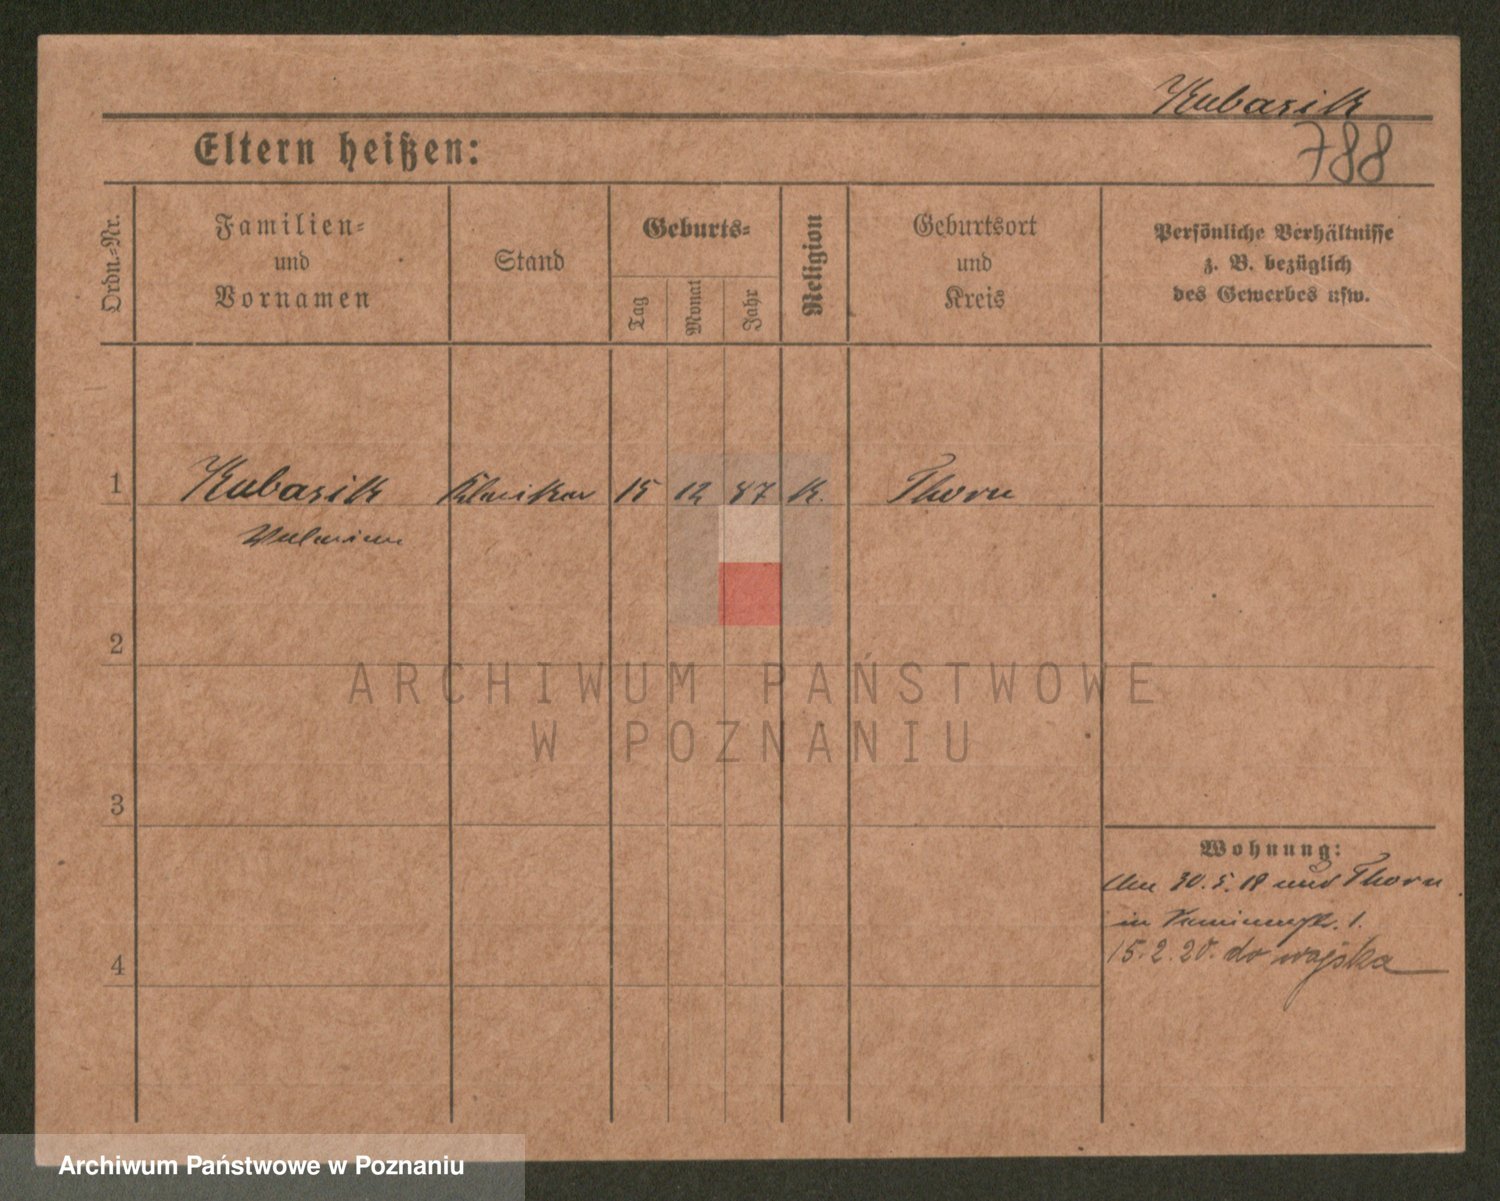 Kubasik
Eltern heißen:
788
Ordn.-Nr.
Familien-
und
Vornamen
Stand
Geburts-
Tag
Monat
Jahr
Religion
Geburtsort
und
Kreis
Persönliche Verhältnisse
z. B. bezüglich
des Gewerbes usw.
1 Kubasik 15 12 87 K. Thorn
2
3
4
Wohnung:
Am 30.5.18 und Thorn
in 1.
15.2.20. do wojska
ARCHIWUM PAŃSTWOWE
W POZNANIU
Archiwum Państwowe w Poznaniu